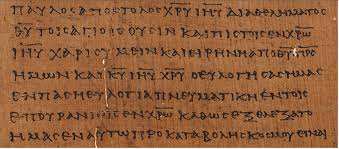 ΠΑΥΛΟϹ ΑΠΟϹΤΟΛΟϹ ΧΡΥ ΙΗΥ ΔΙΑ ΘΕΛΗΜΑΤΟϹ
ΘΥ ΤΟΙϹ ΑΓΙΟΙϹ ΟΥϹΙΝ ΚΑΙ ΠΙϹΤΟΙϹ ΕΝ ΧΡΩ
ΙΗΥ ΧΑΡΙϹ ΥΜΕΙΝ ΚΑΙ ΕΙΡΗΝΗ ΑΠΟ ΘΥ ΠΡϹ
ΗΜΩΝ ΚΑΙ ΚΥ ΙΗΥ ΧΡΥ Ο ΕΥΛΟΓΗϹΑϹ ΗΜΑϹ
ΕΝ ΠΑϹΗ ΕΥΛΟΓΙΑ ΠΝΕΥΜΑΤΙΚΗ ΕΝ ΤΟΙϹ
ΕΠΟΥΡΑΝΙΟΙϹ ΕΝ ΧΡΩ ΚΑΘΩϹ ΕΞΕΛΕΞΑΤΟ
ΗΜΑϹ ΕΝ ΑΥΤΩ ΠΡΟ ΚΑΤΑΒΟΛΗϹ ΚΟϹΜΟΥ ΕΙΝΑΙ